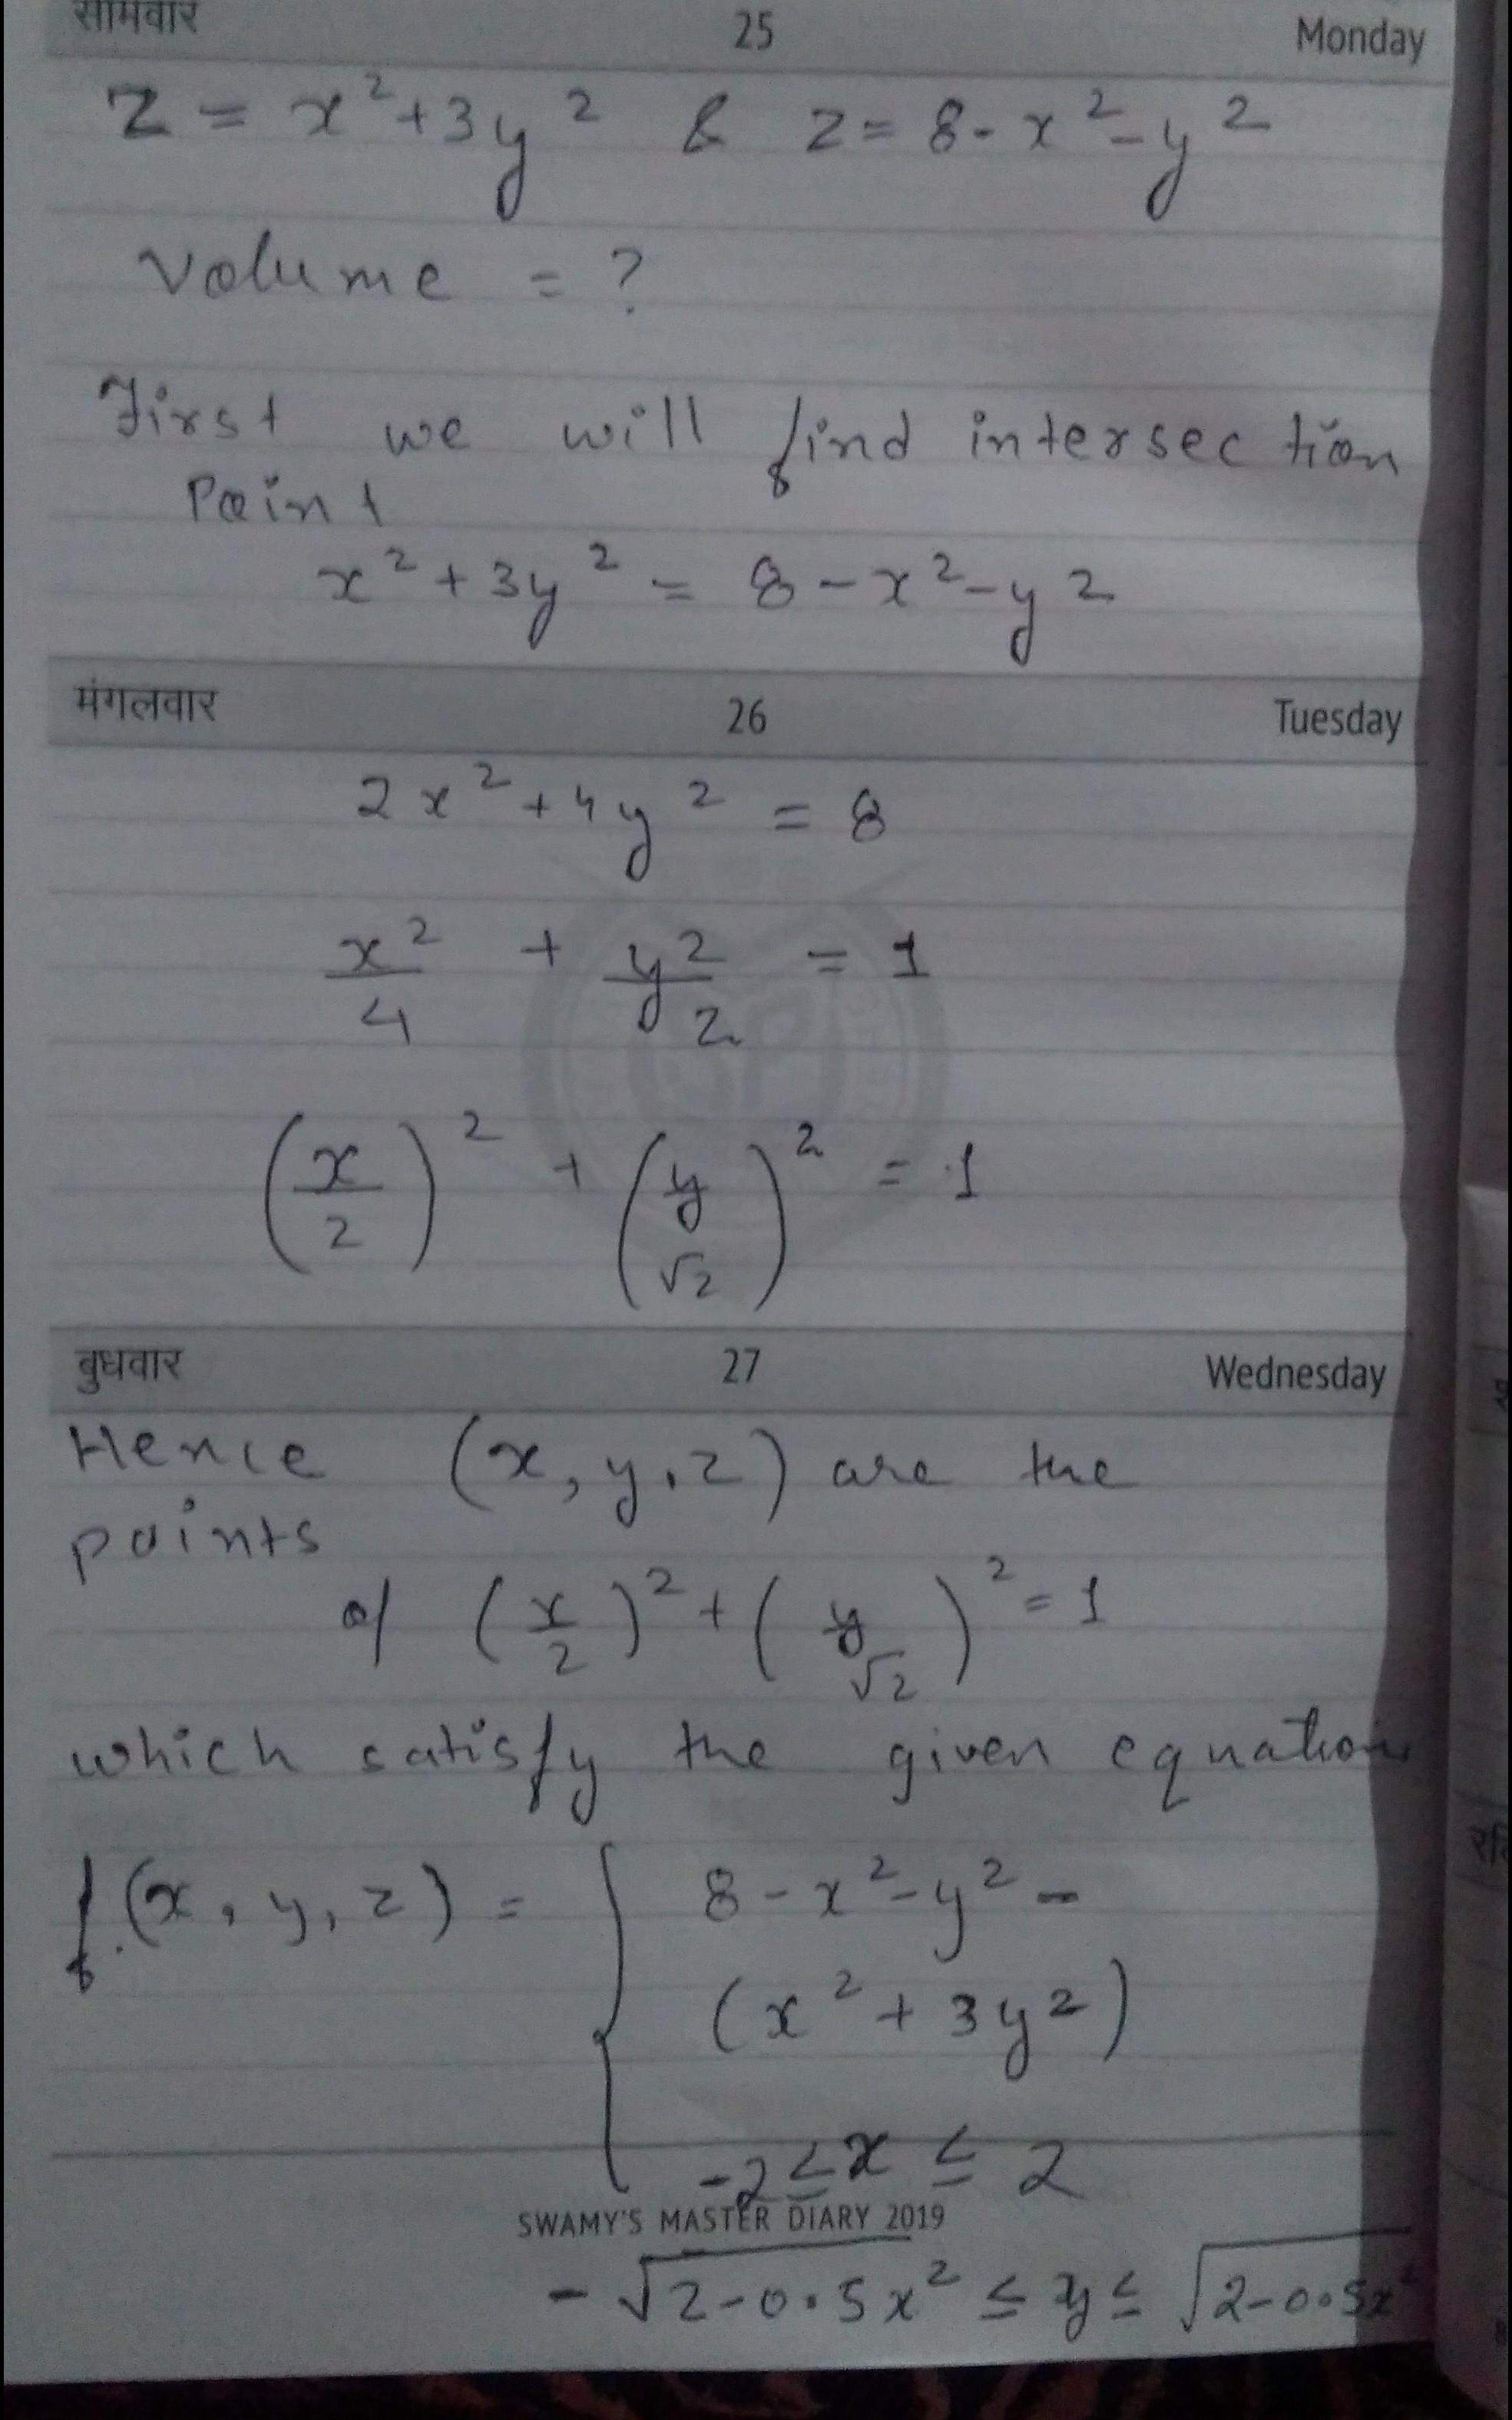 सोमवार 25 Monday
z = x²+3y² & z = 8-x²-y²
Volume = ?
First we will find intersection
Point
x²+3y² = 8-x²-y²
मंगलवार 26 Tuesday
2x²+4y² = 8
x²/4 + y²/2 = 1
(x/2)² + (y/√2)² = 1
बुधवार 27 Wednesday
Hence (x, y, z) are the
points
of (x/2)² + (y/√2)² = 1
which satisfy the given equation
f(x, y, z) = { 8-x²-y²-
(x²+3y²)
-2 ≤ x ≤ 2
SWAMY'S MASTER DIARY 2019
-√2-0.5x² ≤ y ≤ √2-0.5x²